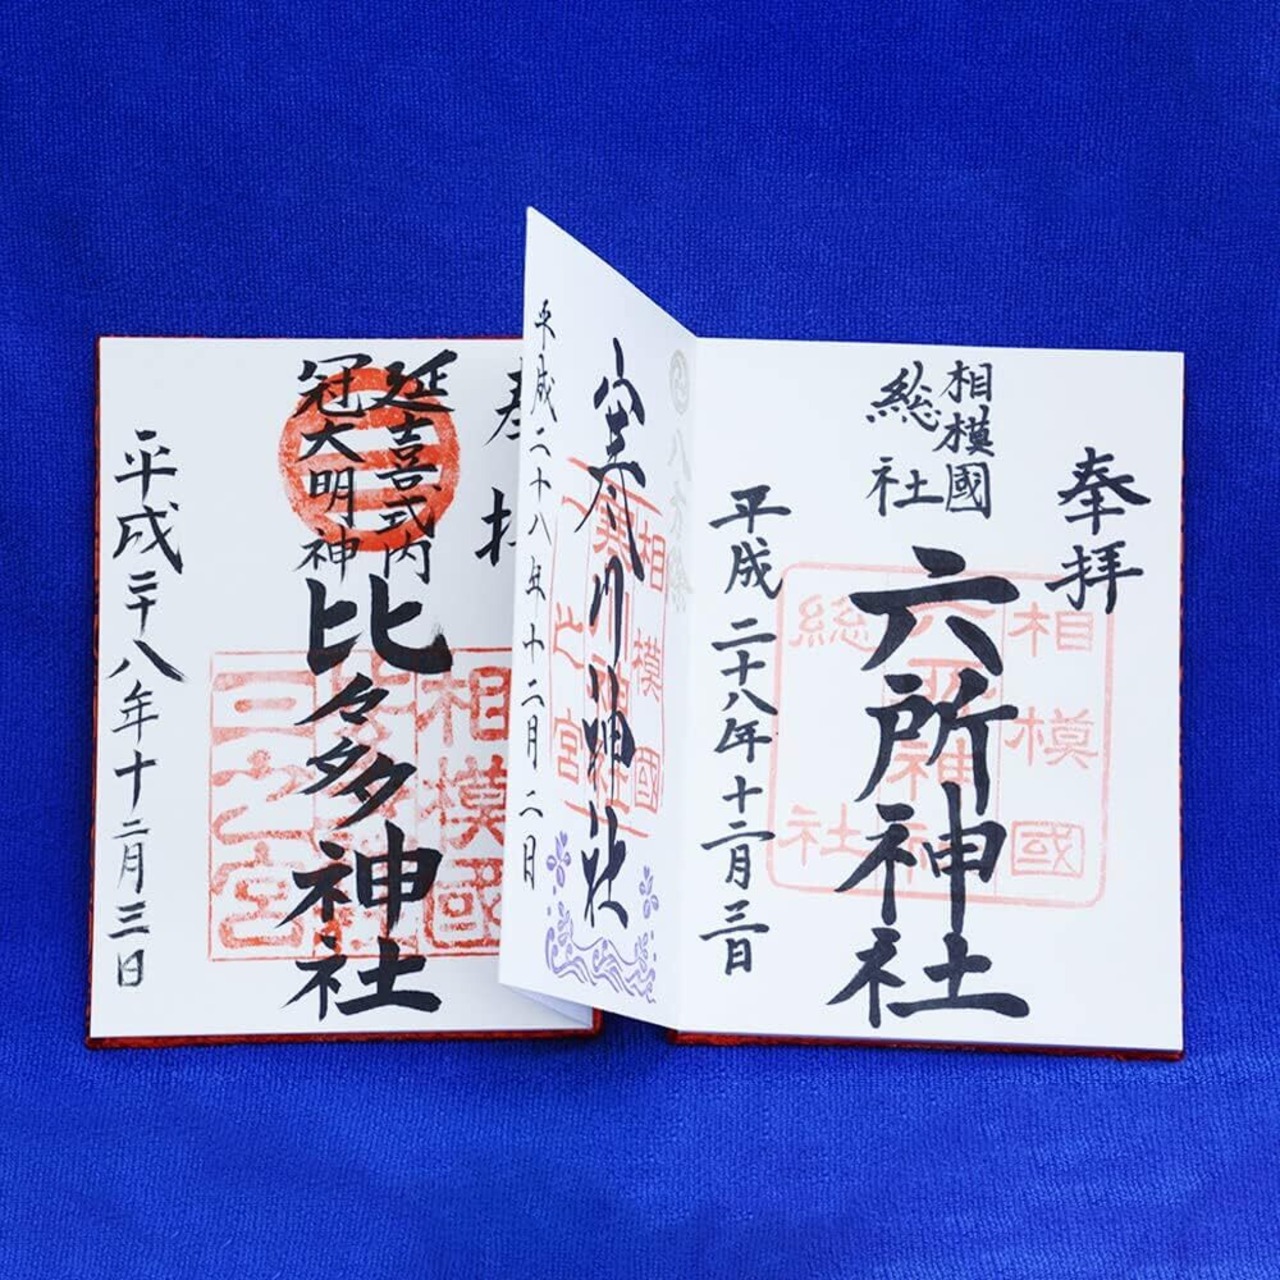 奉拝
相模國
総社
六所神社
平成二十八年十二月三日
相模國
六所神社
総社
寒川神社
平成二十八年十二月二日
相模國
寒川神社
之宮
奉拝
延喜式内
冠大明神
比々多神社
平成二十八年十二月三日
相模國
三之宮